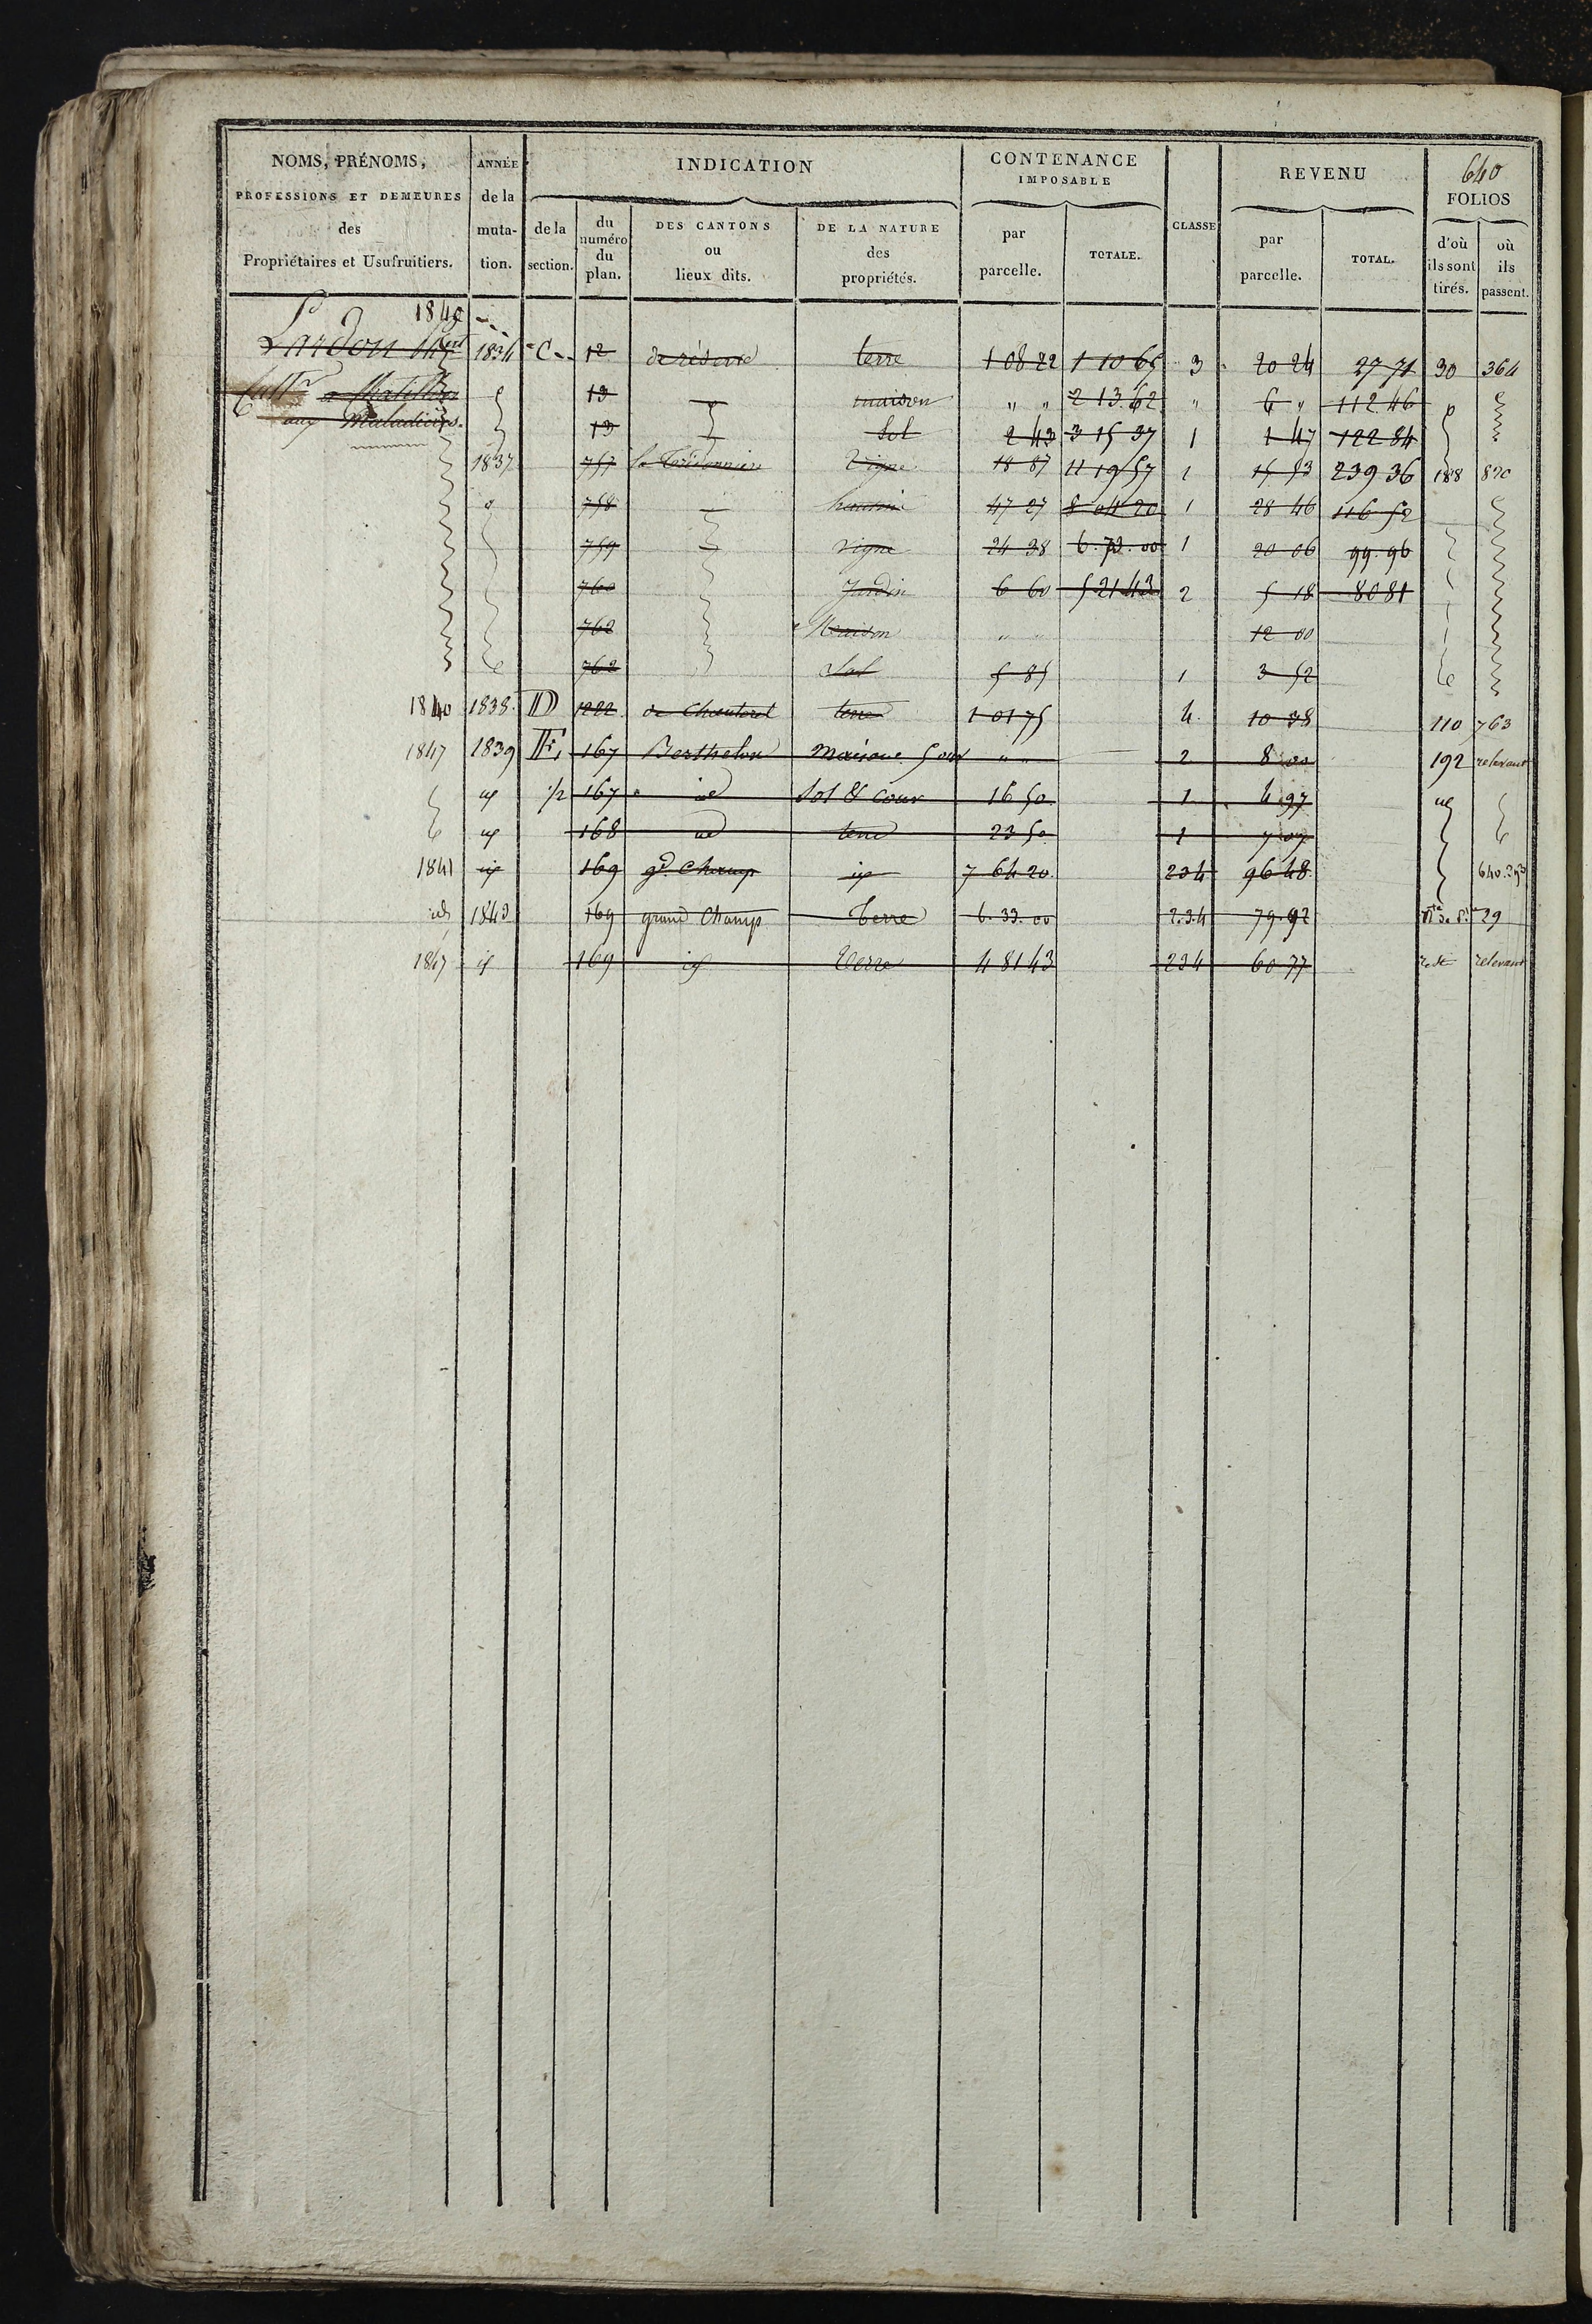 640
NOMS, PRÉNOMS, ANNÉE INDICATION CONTENANCE REVENU FOLIOS
PROFESSIONS ET DEMEURES de la IMPOSABLE
des muta- de la du DES CANTONS DE LA NATURE par CLASSE par d'où où
Propriétaires et Usufruitiers. tion. section. numéro ou des parcelle. TOTALE. parcelle. TOTAL. ils sont ils
du lieux dits. propriétés. tirés. passent.
plan.
1840
Lardon 1834 C 12 de réserve terre 1 08 22 1 10 65 3 20 24 27 71 30 364
13 maison " " 2 13 62 " 6 " 112 46
aux Maladières. 13 Sol 2 43 3 15 37 1 1 47 122 84
1837 757 Vigne 18 87 11 19 57 1 15 53 239 36 188 820
758 47 27 8 04 20 1 28 46 116 52
759 vigne 24 38 6. 73. 00 1 20 06 99. 96
760 Jardin 6 60 5 21 43 2 5 18 80 81
762 Maison " " 12 00
762 Sol 5 85 1 3 52
1840 1838. D 1222 de Chanterel terre 1 01 75 4. 10 38 110 763
1847 1839 E, 167 Berthelon Maison " " 2 8 00 192 relevant
id 1/2 167 id Sol & cour 16 50 1 4 97 id
id 168 id terre 23 50 1 7 07
1841 id 169 gd. Champ id 7 64 20 234 96 48 640. 293
id 1843 169 grand Champ Terre 6. 33. 00 2.3.4 79. 92 29
1847 id 169 id Terre 4 81 43 234 60 77 reste relevant